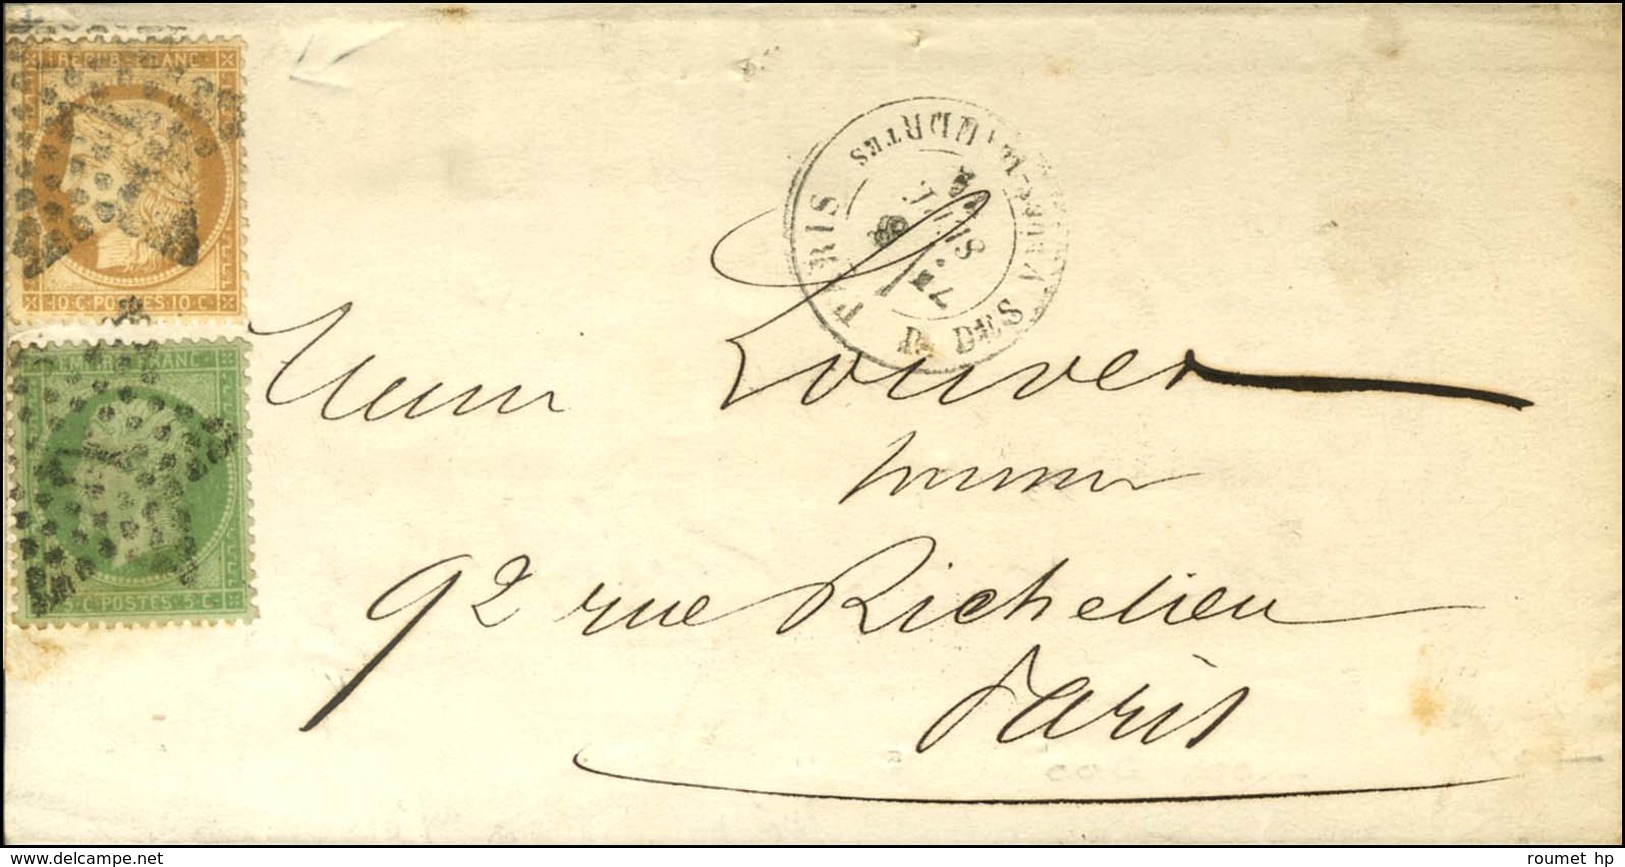 REPUB. FRANC.
10 C. POSTES 10 C.
EMPIRE FRANC
5 C. POSTES 5 C.
PARIS
R. DES VIELLES-HAUDRTES
7E
Louvet
92 rue Richelieu
Paris
www.delcampe.net
roumet hp